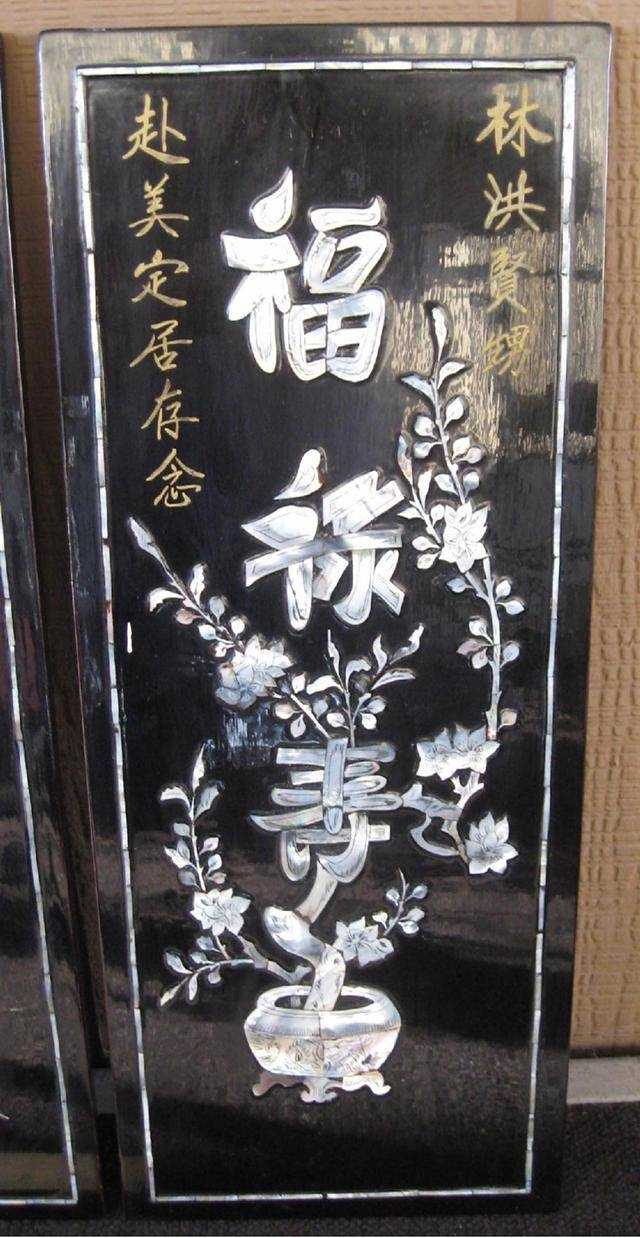 林洪賢甥
福祿壽
赴美定居存念